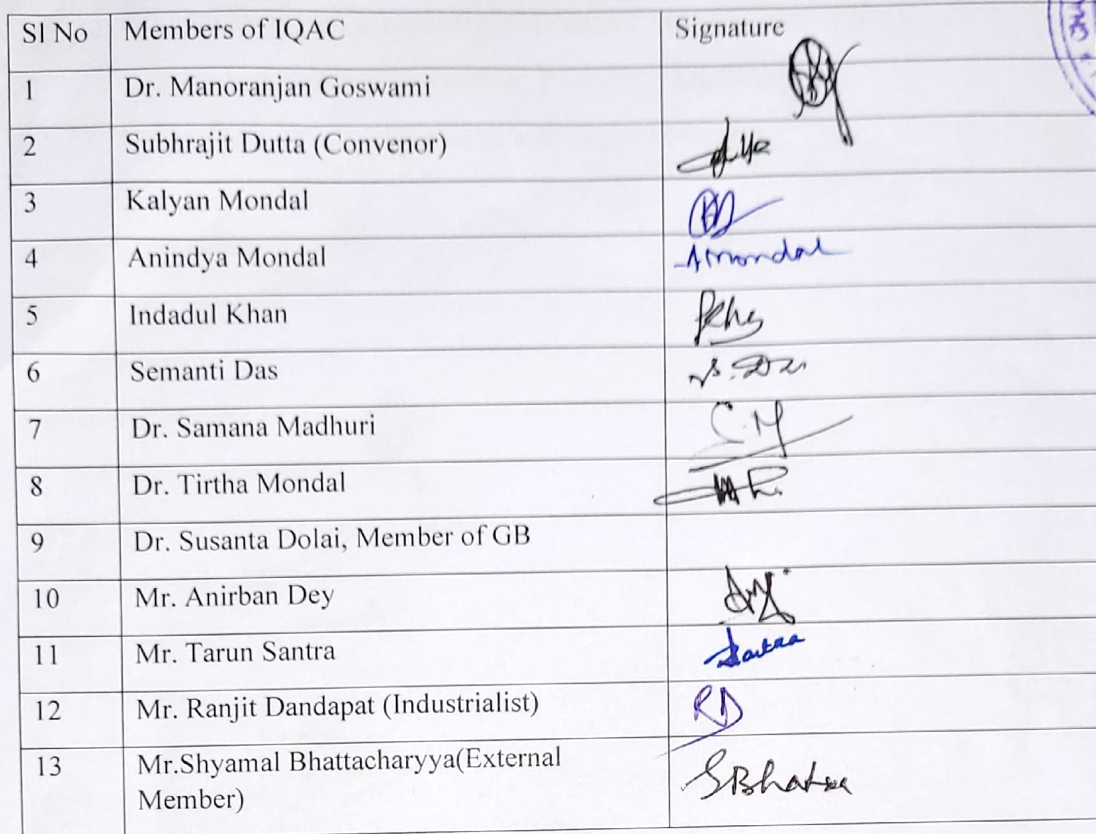 Sl No Members of IQAC Signature
1 Dr. Manoranjan Goswami
2 Subhrajit Dutta (Convenor)
3 Kalyan Mondal
4 Anindya Mondal AMondal
5 Indadul Khan
6 Semanti Das S. Das
7 Dr. Samana Madhuri S.M
8 Dr. Tirtha Mondal
9 Dr. Susanta Dolai, Member of GB
10 Mr. Anirban Dey
11 Mr. Tarun Santra Santra
12 Mr. Ranjit Dandapat (Industrialist) RD
13 Mr.Shyamal Bhattacharyya(External
Member)